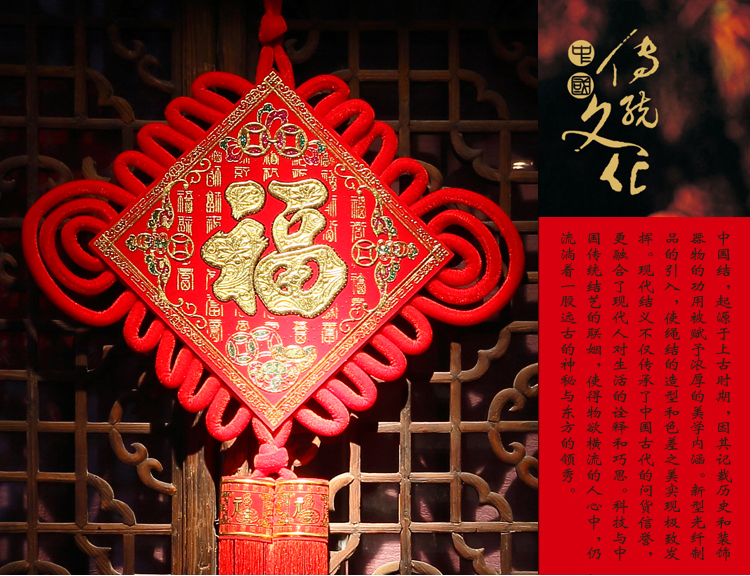 福
中國
传统文化
中国结，起源于上古时期，因其记载历史和装饰
器物的功用被赋予浓厚的美学内涵。新型光纤制
品的引入，使绳结的造型和色差之美实现极致发
挥。现代结义不仅传承了中国古代的问货信誉，
更融合了现代人对生活的诠释和巧思。科技与中
国传统结艺的联姻，使得物欲横流的人心中，仍
流淌着一股远古的神秘与东方的领秀。